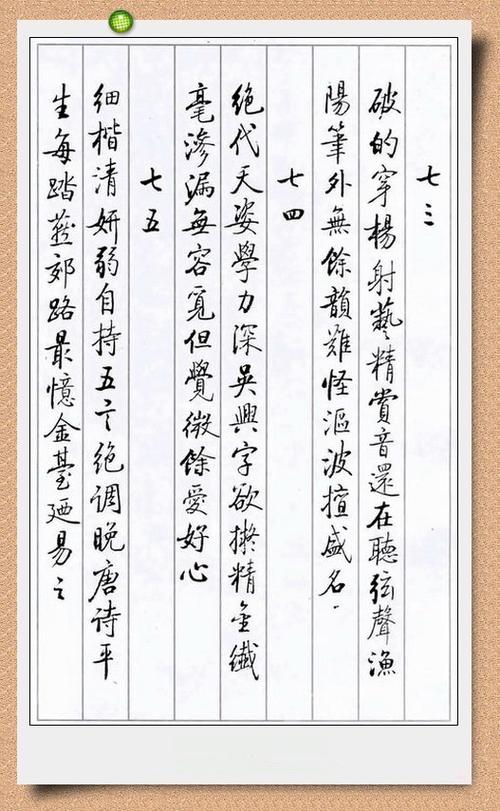 七三
破的穿楊射藝精賞音還在聽弦聲漁
陽筆外無餘韻難怪漚波擅盛名
七四
絕代天姿學力深吳興字欲擬精金纖
毫滲漏無容覓但覺微餘愛好心
七五
細楷清妍弱自持五言絕調晚唐詩平
生每踏燕郊路最憶金臺廼易之